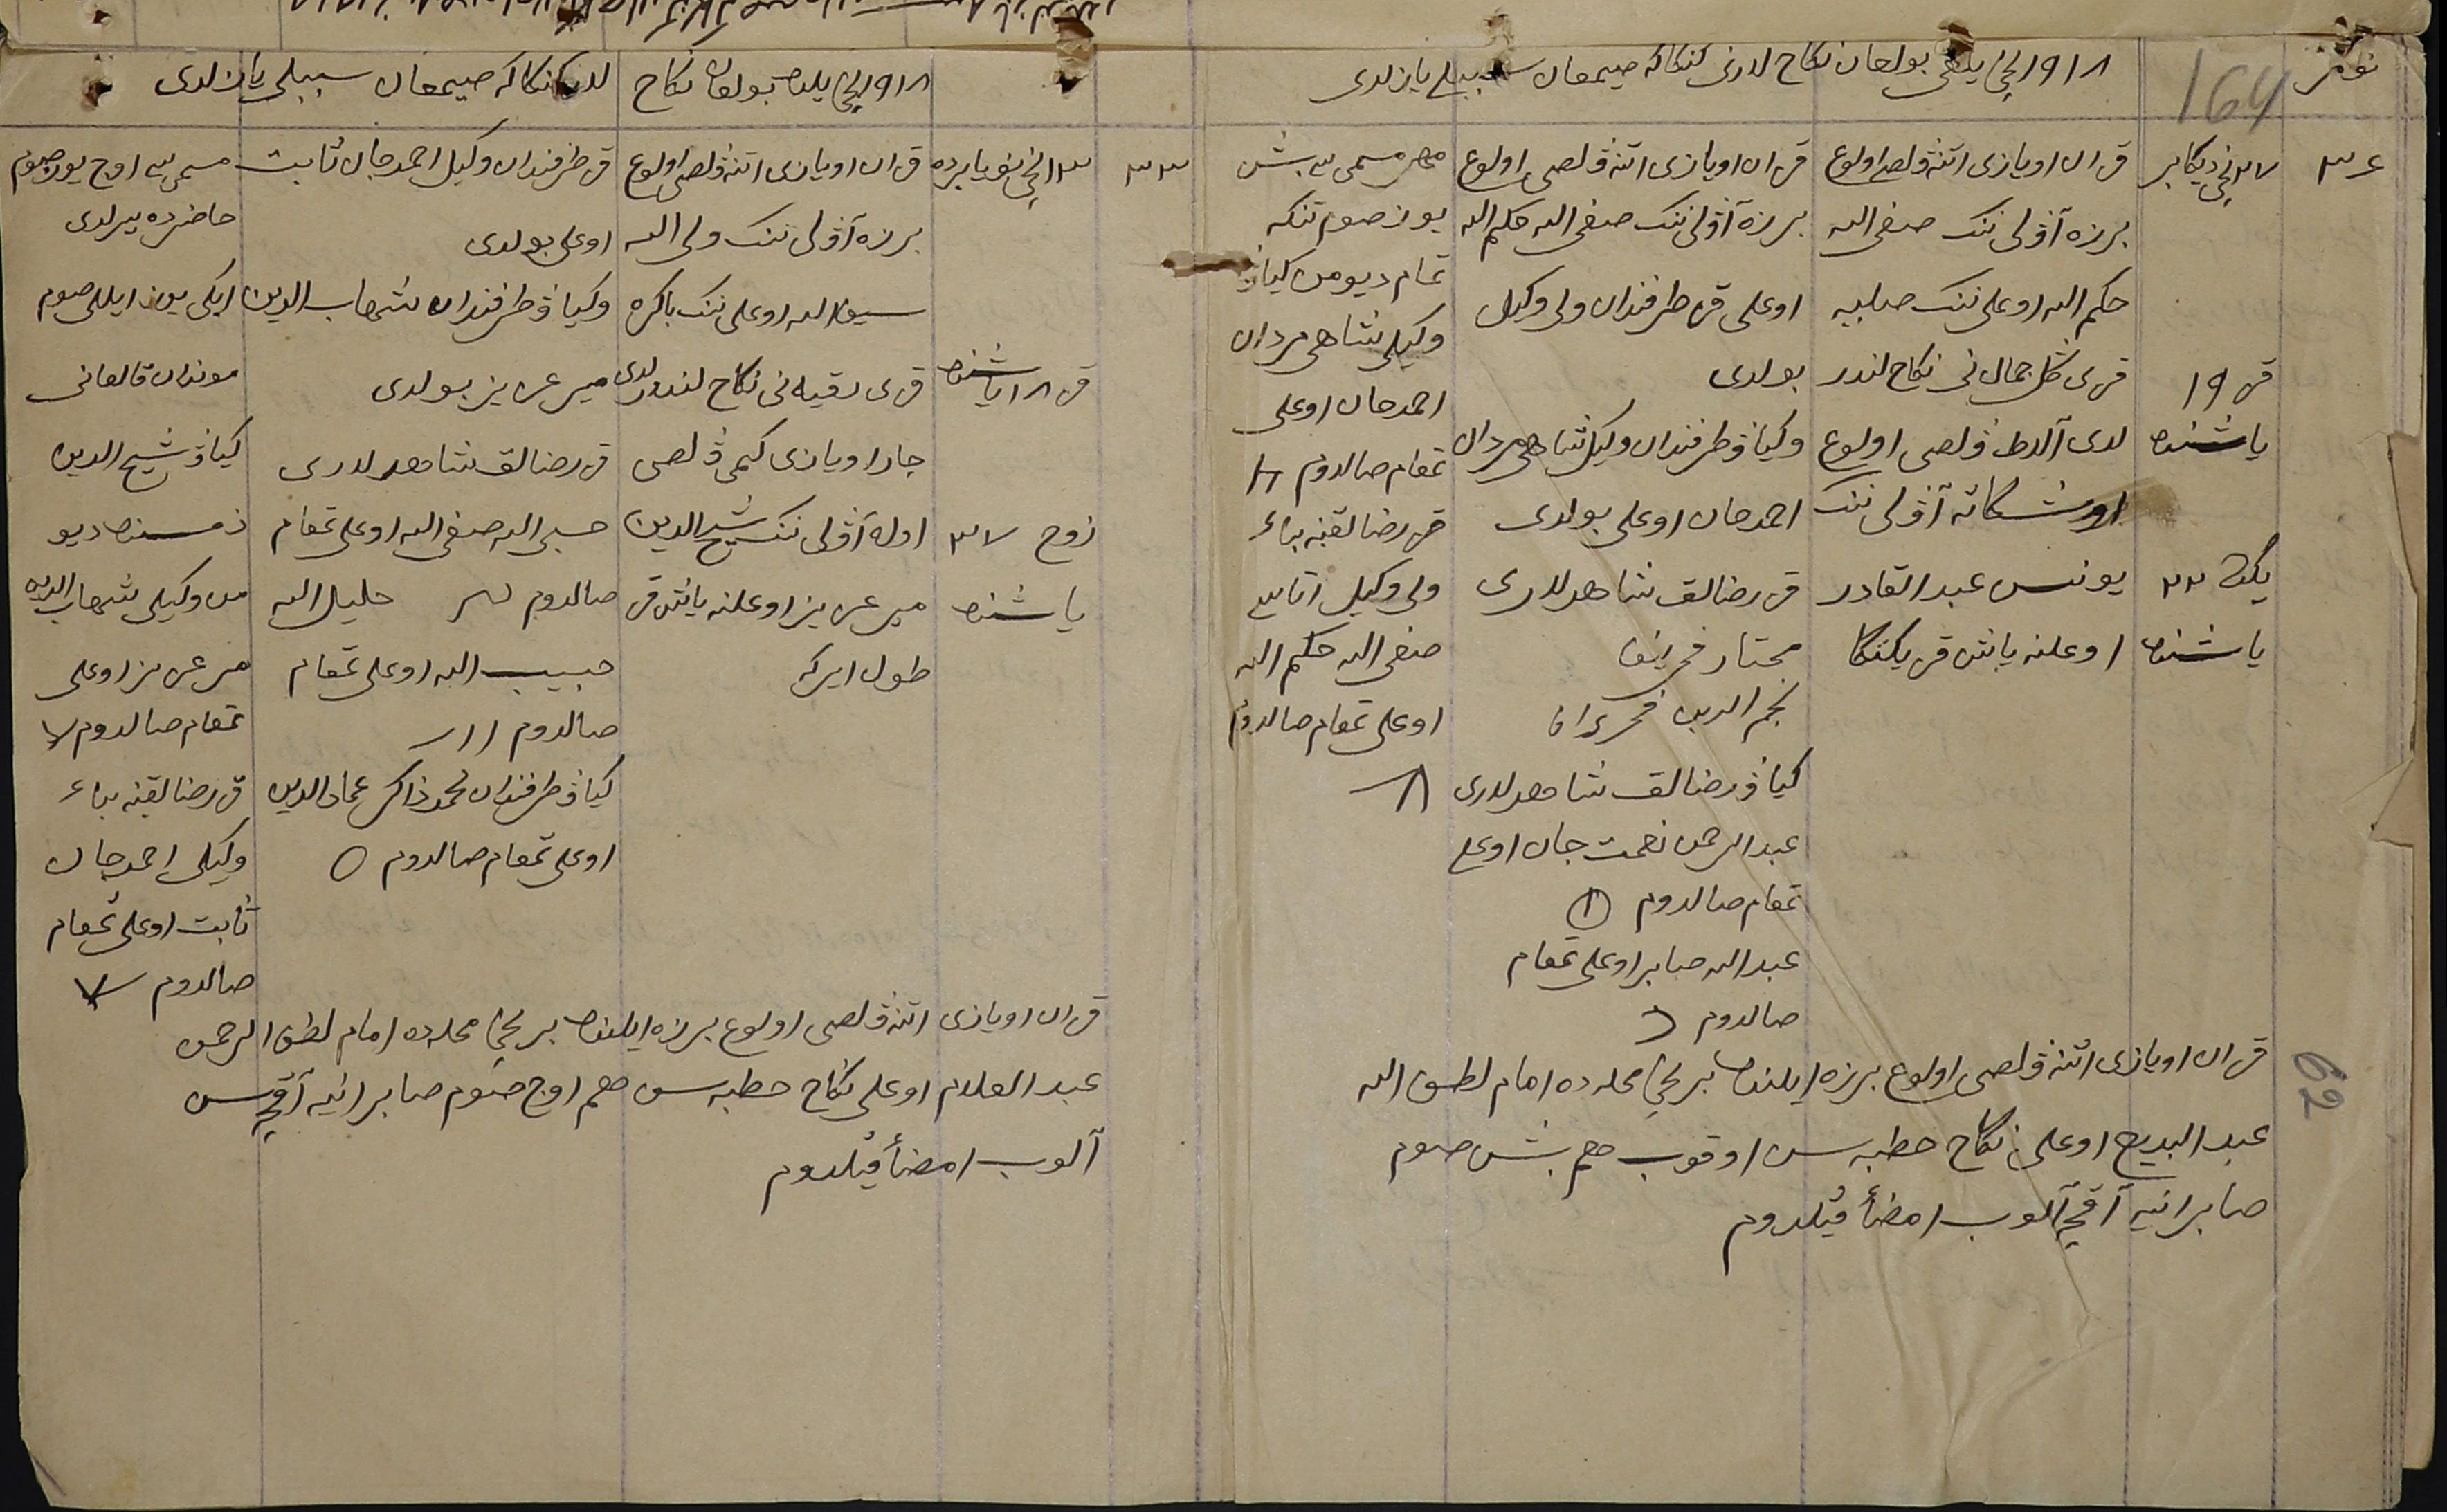 نومر
164
۱۹۱۸ نچی یلغی بولغان نکاح لارنی کنکاکه صیمغان سببلی یازلدی
۳۴
۲۷نچی دیکابر
قزان اویازی اتنه ڤلصی اولوغ
برزه آڤلی ننک صفی الله
حکم الله اوغلی ننک صلبیه
قزی گل جمال نی نکاح لندر
لدی آلاط ڤلصی اولوغ
اورشکاته آڤلی ننک
یونس عبد القادر
اوغلنه یاش قز یکتکا
قز ۱۹
یاشنده
یکت ۲۲
یاشنده
قزان اویازی اتنه ڤلصی اولوغ
برزه آڤلی ننک صفی الله حکم الله
اوغلی قز طرفندان ولی وکیل
بولدی
وکیاۋ طرفندان وکیل شاهی مردان
احمدجان اوغلی بولدی
قز رضالق شاهدلاری
مختار فخری
نجم الدین
کیاۋ رضالق شاهدلاری
عبدالرحمن نعمت جان اوغلی
تمغام صالدوم
عبدالله صابر اوغلی تمغام
صالدوم
مهر مسمی سی بش
یوز صوم تنکه
تمام دیومن کیاۋ
وکیلی شاهی مردان
احمدجان اوغلی
تمغام صالدوم
قز رضالقنه بناء
ولی وکیل اتاسی
صفی الله حکم الله
اوغلی تمغام صالدوم
قزان اویازی اتنه ڤلصی اولوغ برزه ایلنده برنچی محله ده امام لطف الله
عبد البدیع اوغلی نکاح خطبه سن اوقوب هم بش صوم
صابرانیه آقچه آلوب امضأ قیلدوم
62
۱۹۱۸ نچی یلده بولغان نکاح لارنی کنکاکه صیمغان سببلی یازلدی
۳۳
۱۳نچی نویابرده
قز ۱۸ یاشنده
زوج ۲۷
یاشنده
قزان اویازی اتنه ڤلصی اولوغ
برزه آڤلی ننک ولی الله
سیف الله اوغلی ننک باکره
قزی رقیه نی نکاح لندرلدی
چار اویازی کیمی ڤلصی
اوله آڤلی ننک شیخ الدین
میر عزیز اوغلنه یاش قز
طول ایرکه
قز طرفندان وکیل احمدجان ثابت
اوغلی بولدی
وکیاۋ طرفندان شهاب الدین
میر عزیز بولدی
قز رضالق شاهدلاری
حبیب الله صفی الله اوغلی تمغام
صالدوم خلیل الله
حبیب الله اوغلی تمغام
صالدوم
کیاۋ طرفندان محمد ذاکر عماد الدین
اوغلی تمغام صالدوم
مسمی سی اوچ یوز صوم
حاضرده بیرلدی
ایکی یوز ایللی صوم
موندان قالغانی
کیاۋ شیخ الدین
ذمسنده دیو
من وکیلی شهاب الدین
میر عزیز اوغلی
تمغام صالدوم
قز رضالقنه بناء
وکیلی احمدجان
ثابت اوغلی تمغام
صالدوم
قزان اویازی اتنه ڤلصی اولوغ برزه ایلنده برنچی محله ده امام لطف الرحمن
عبد العلام اوغلی نکاح خطبه سن هم اوچ صوم صابرانیه آقچه سن
آلوب امضأ قیلدوم